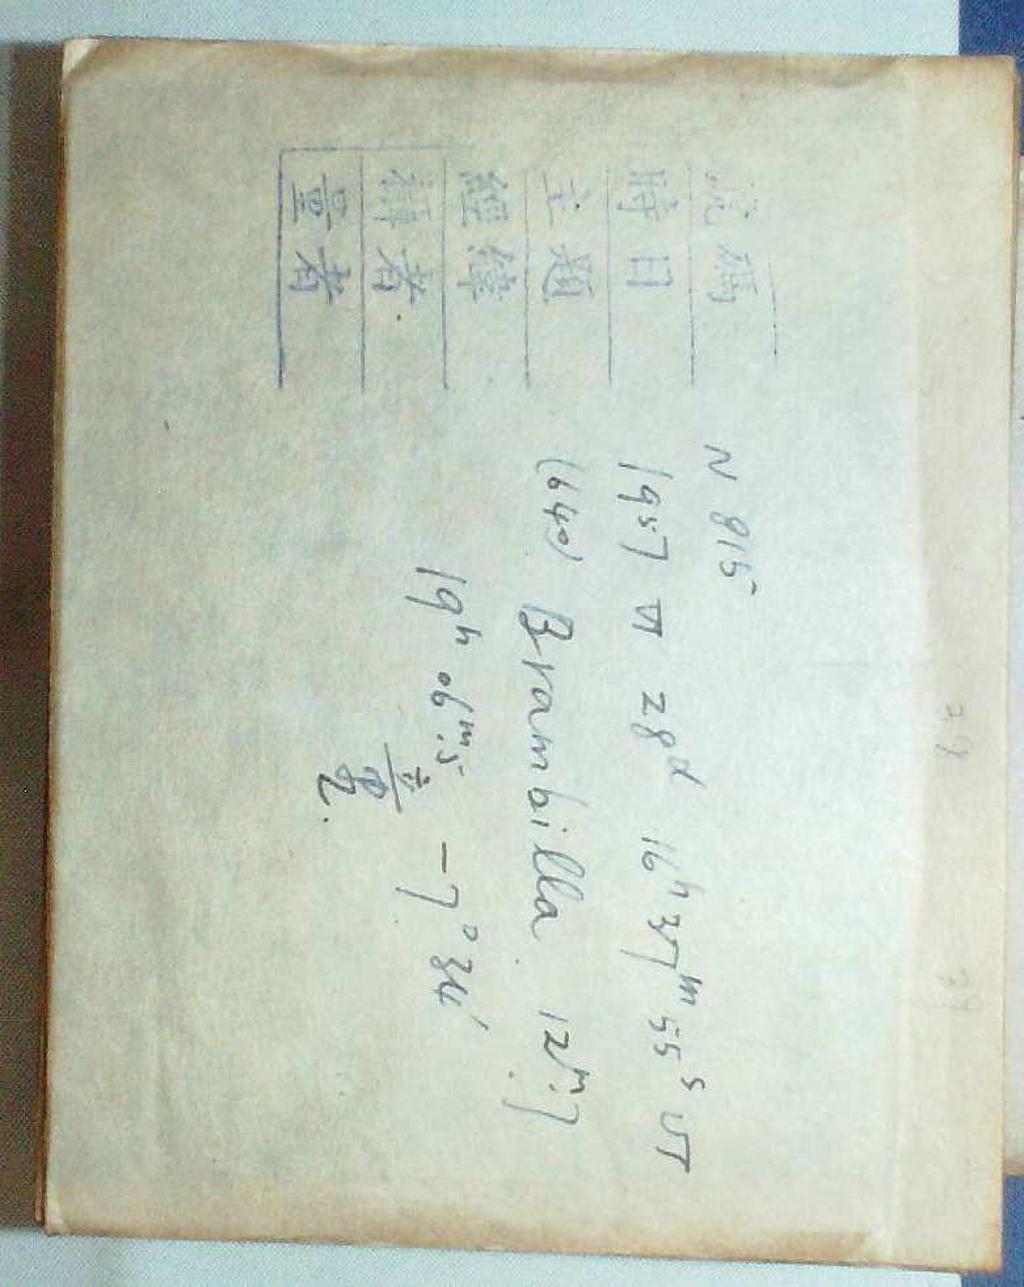 號碼 N 815
時日 1957 VI 28ᵈ 16ʰ 37ᵐ 55ˢ UT
主題 (640) Brambilla 12ᵐ.7
經緯 19ʰ 06ᵐ.5 -7°34'
者
量者